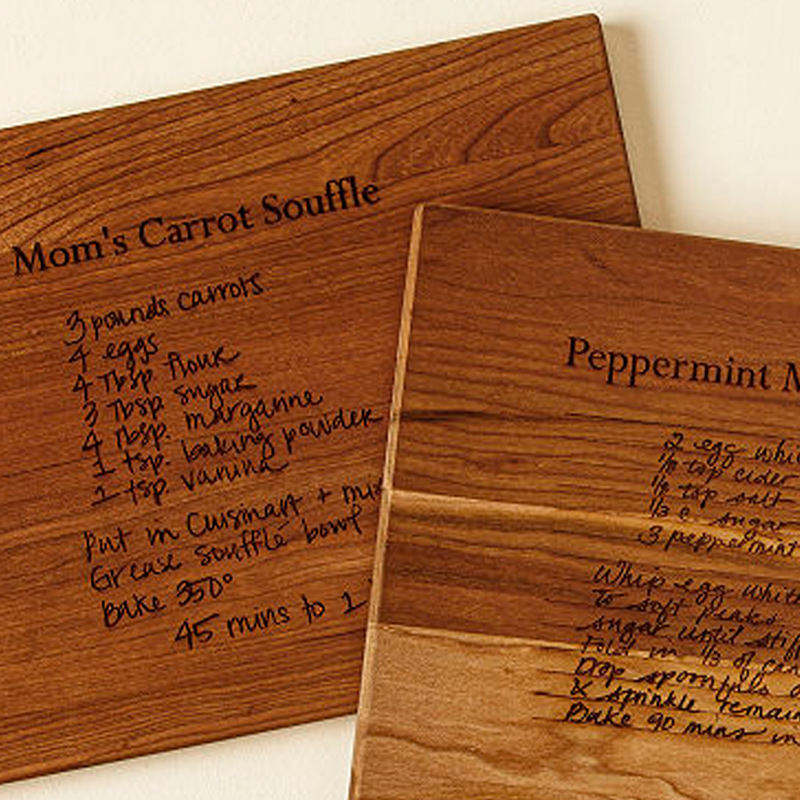 Mom's Carrot Souffle
3 pounds carrots
4 eggs
4 Tbsp flour
3 Tbsp sugar
4 Tbsp. margarine
1 tsp. baking powder
1 tsp. vanilla
Put in Cuisinart + mix
Grease soufflé bowl
Bake 350°
45 mins to 1
Peppermint M
2 egg whi
1/8 tsp cider
1/8 tsp salt
1/3 c sugar
3 peppermint
Whip egg white
to soft peaks
sugar until stif
Fold in 1/3 of can
Drop spoonfuls
& sprinkle remain
Bake 90 mins in